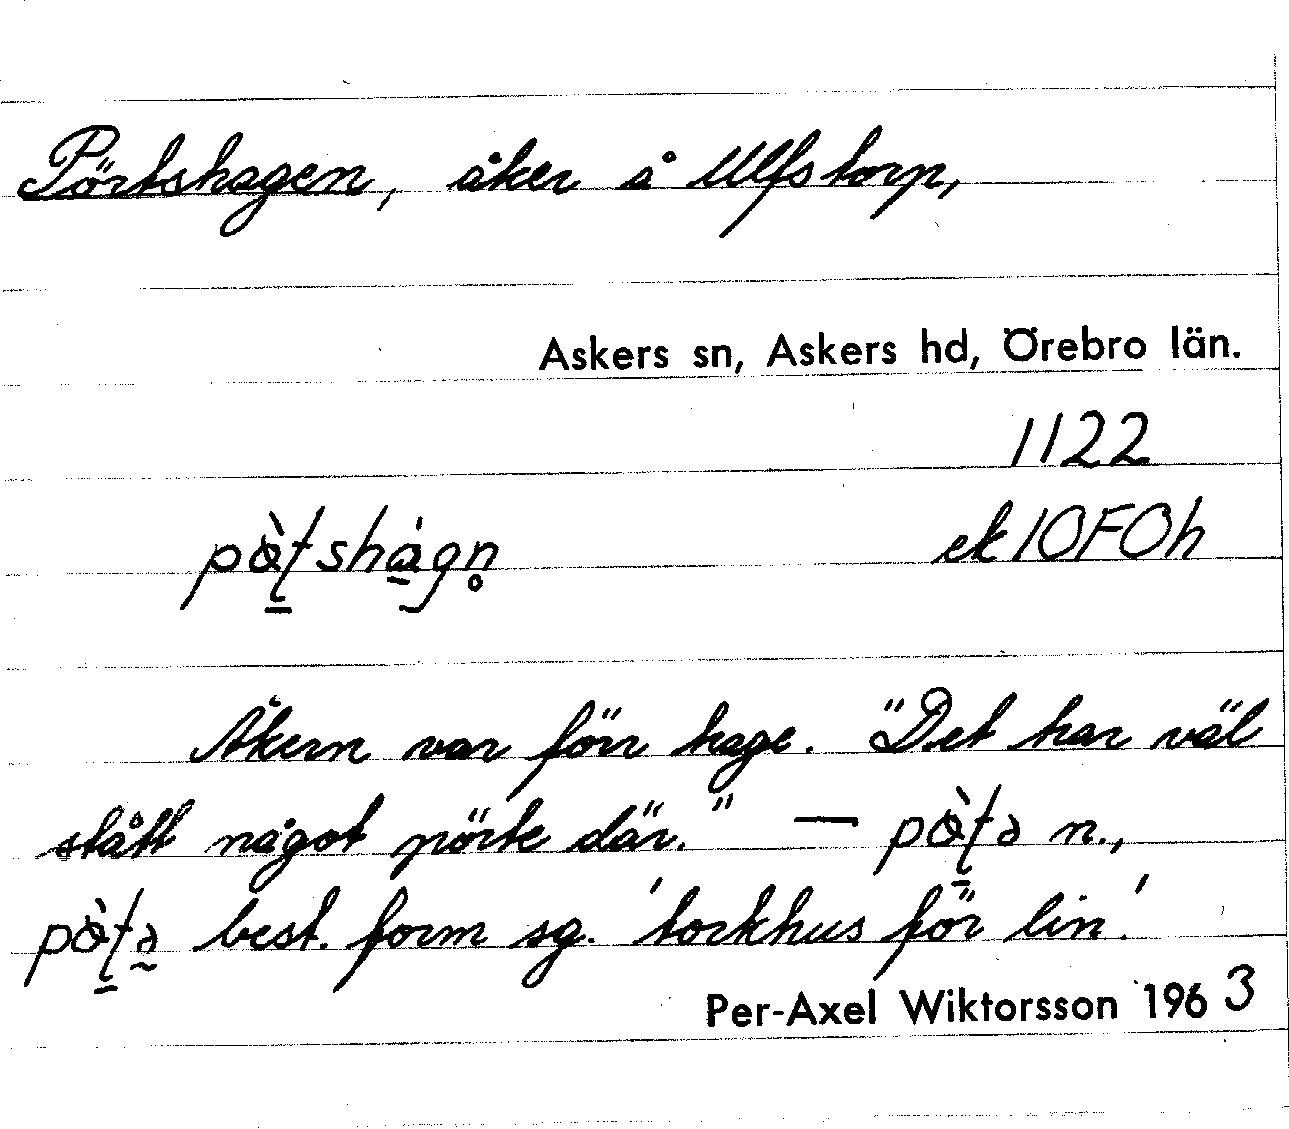 Pörtshagen, åker å Ulfstorp,
Askers sn, Askers hd, Örebro län.
1122
ek 10F0h
Åkern var förr hage. "Det har väl
stått något pörte där." —              n.,
best. form sg. 'torkhus för lin'.
Per-Axel Wiktorsson 1963